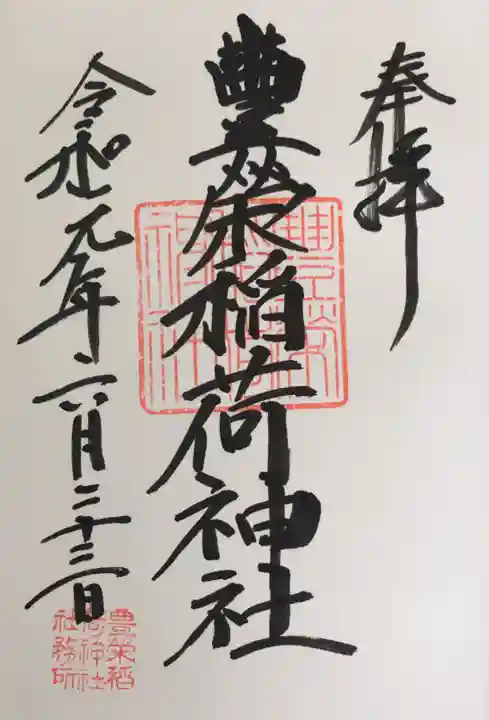 奉拝
豊榮稲荷神社
令和元年六月二十三日
豊栄稲
荷神社
社務所